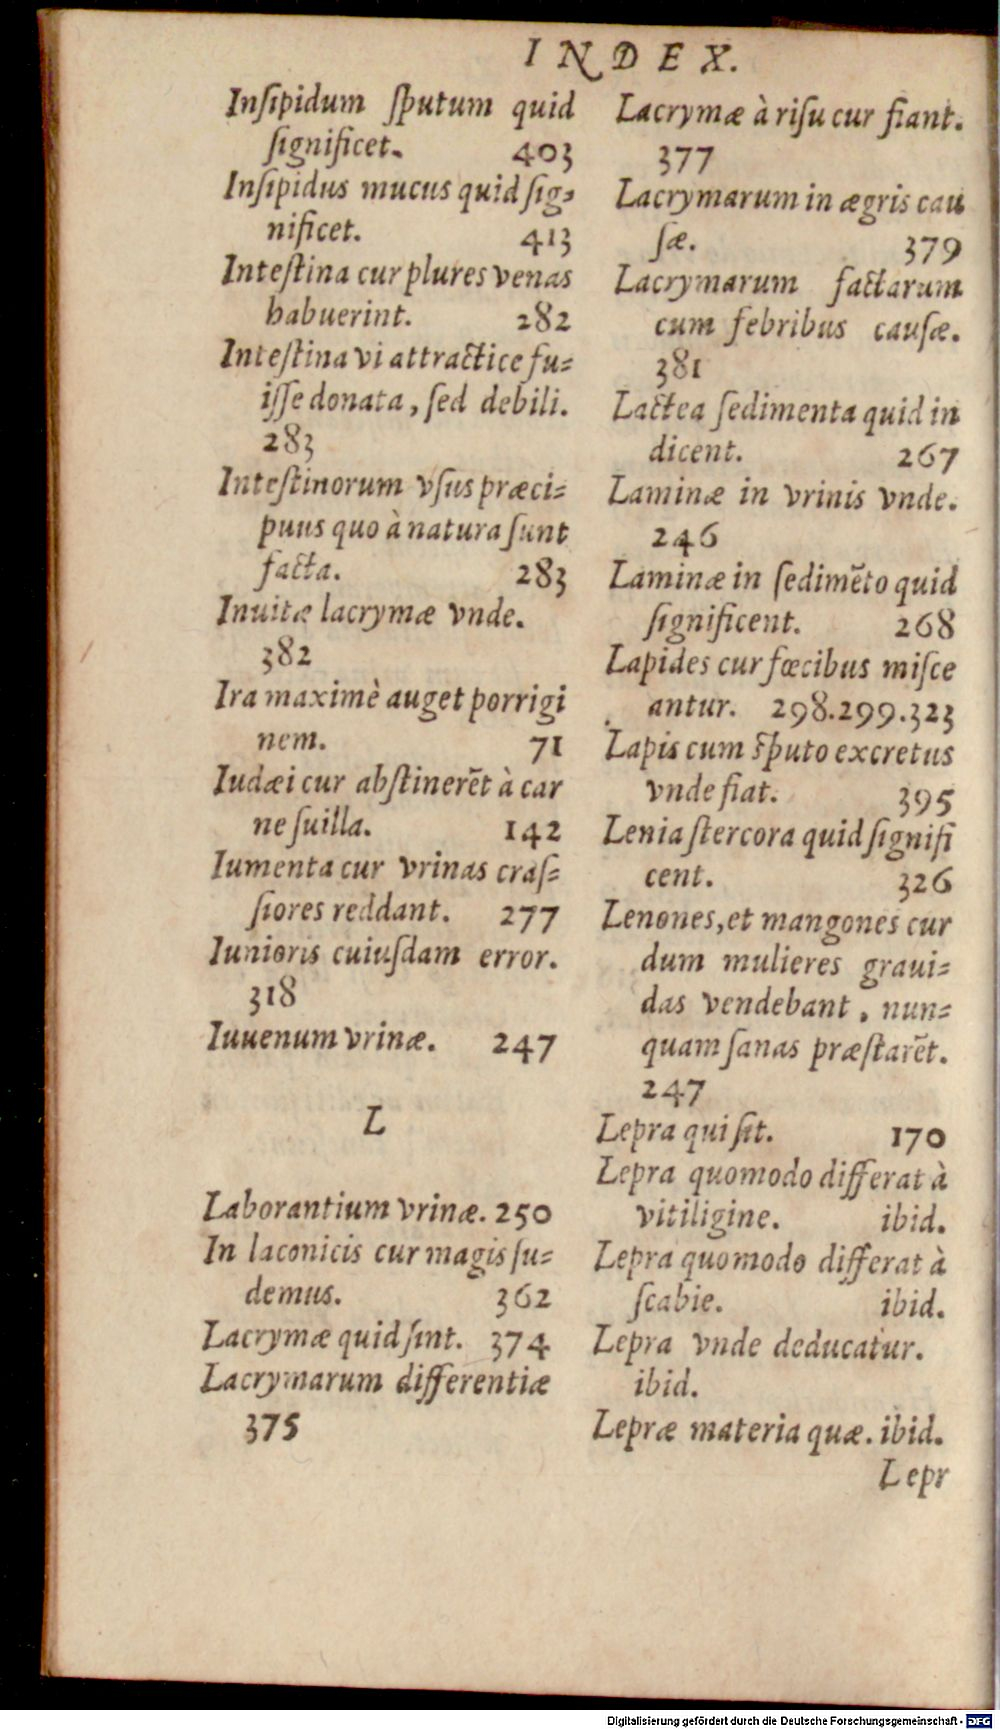 INDEX.
Inſipidum ſputum quid
ſignificet. 403
Inſipidus mucus quid ſig-
nificet. 413
Inteſtina cur plures venas
habuerint. 282
Inteſtina vi attractice fu-
iſſe donata, ſed debili.
283
Inteſtinorum vſus præci-
puus quo à natura ſunt
facta. 283
Inuitæ lacrymæ vnde.
382
Ira maximè auget porrigi
nem. 71
Iudæi cur abſtinerēt à car
ne ſuilla. 142
Iumenta cur vrinas craſ-
ſiores reddant. 277
Iunioris cuiuſdam error.
318
Iuuenum vrinæ. 247
L
Laborantium vrinæ. 250
In laconicis cur magis ſu-
demus. 362
Lacrymæ quid ſint. 374
Lacrymarum differentiæ
375
Lacrymæ à riſu cur fiant.
377
Lacrymarum in ægris cau
ſæ. 379
Lacrymarum factarum
cum febribus cauſæ.
381
Lactea ſedimenta quid in
dicent. 267
Laminæ in vrinis vnde.
246
Laminæ in ſedimēto quid
ſignificent. 268
Lapides cur fœcibus miſce
antur. 298.299.323
Lapis cum ſputo excretus
vnde fiat. 395
Lenia ſtercora quid ſignifi
cent. 326
Lenones, et mangones cur
dum mulieres graui-
das vendebant, nun-
quam ſanas præſtarēt.
247
Lepra qui ſit. 170
Lepra quomodo differat à
vitiligine. ibid.
Lepra quomodo differat à
ſcabie. ibid.
Lepra vnde deducatur.
ibid.
Lepræ materia quæ. ibid.
Lepr
Digitalisierung gefördert durch die Deutsche Forschungsgemeinschaft - DFG